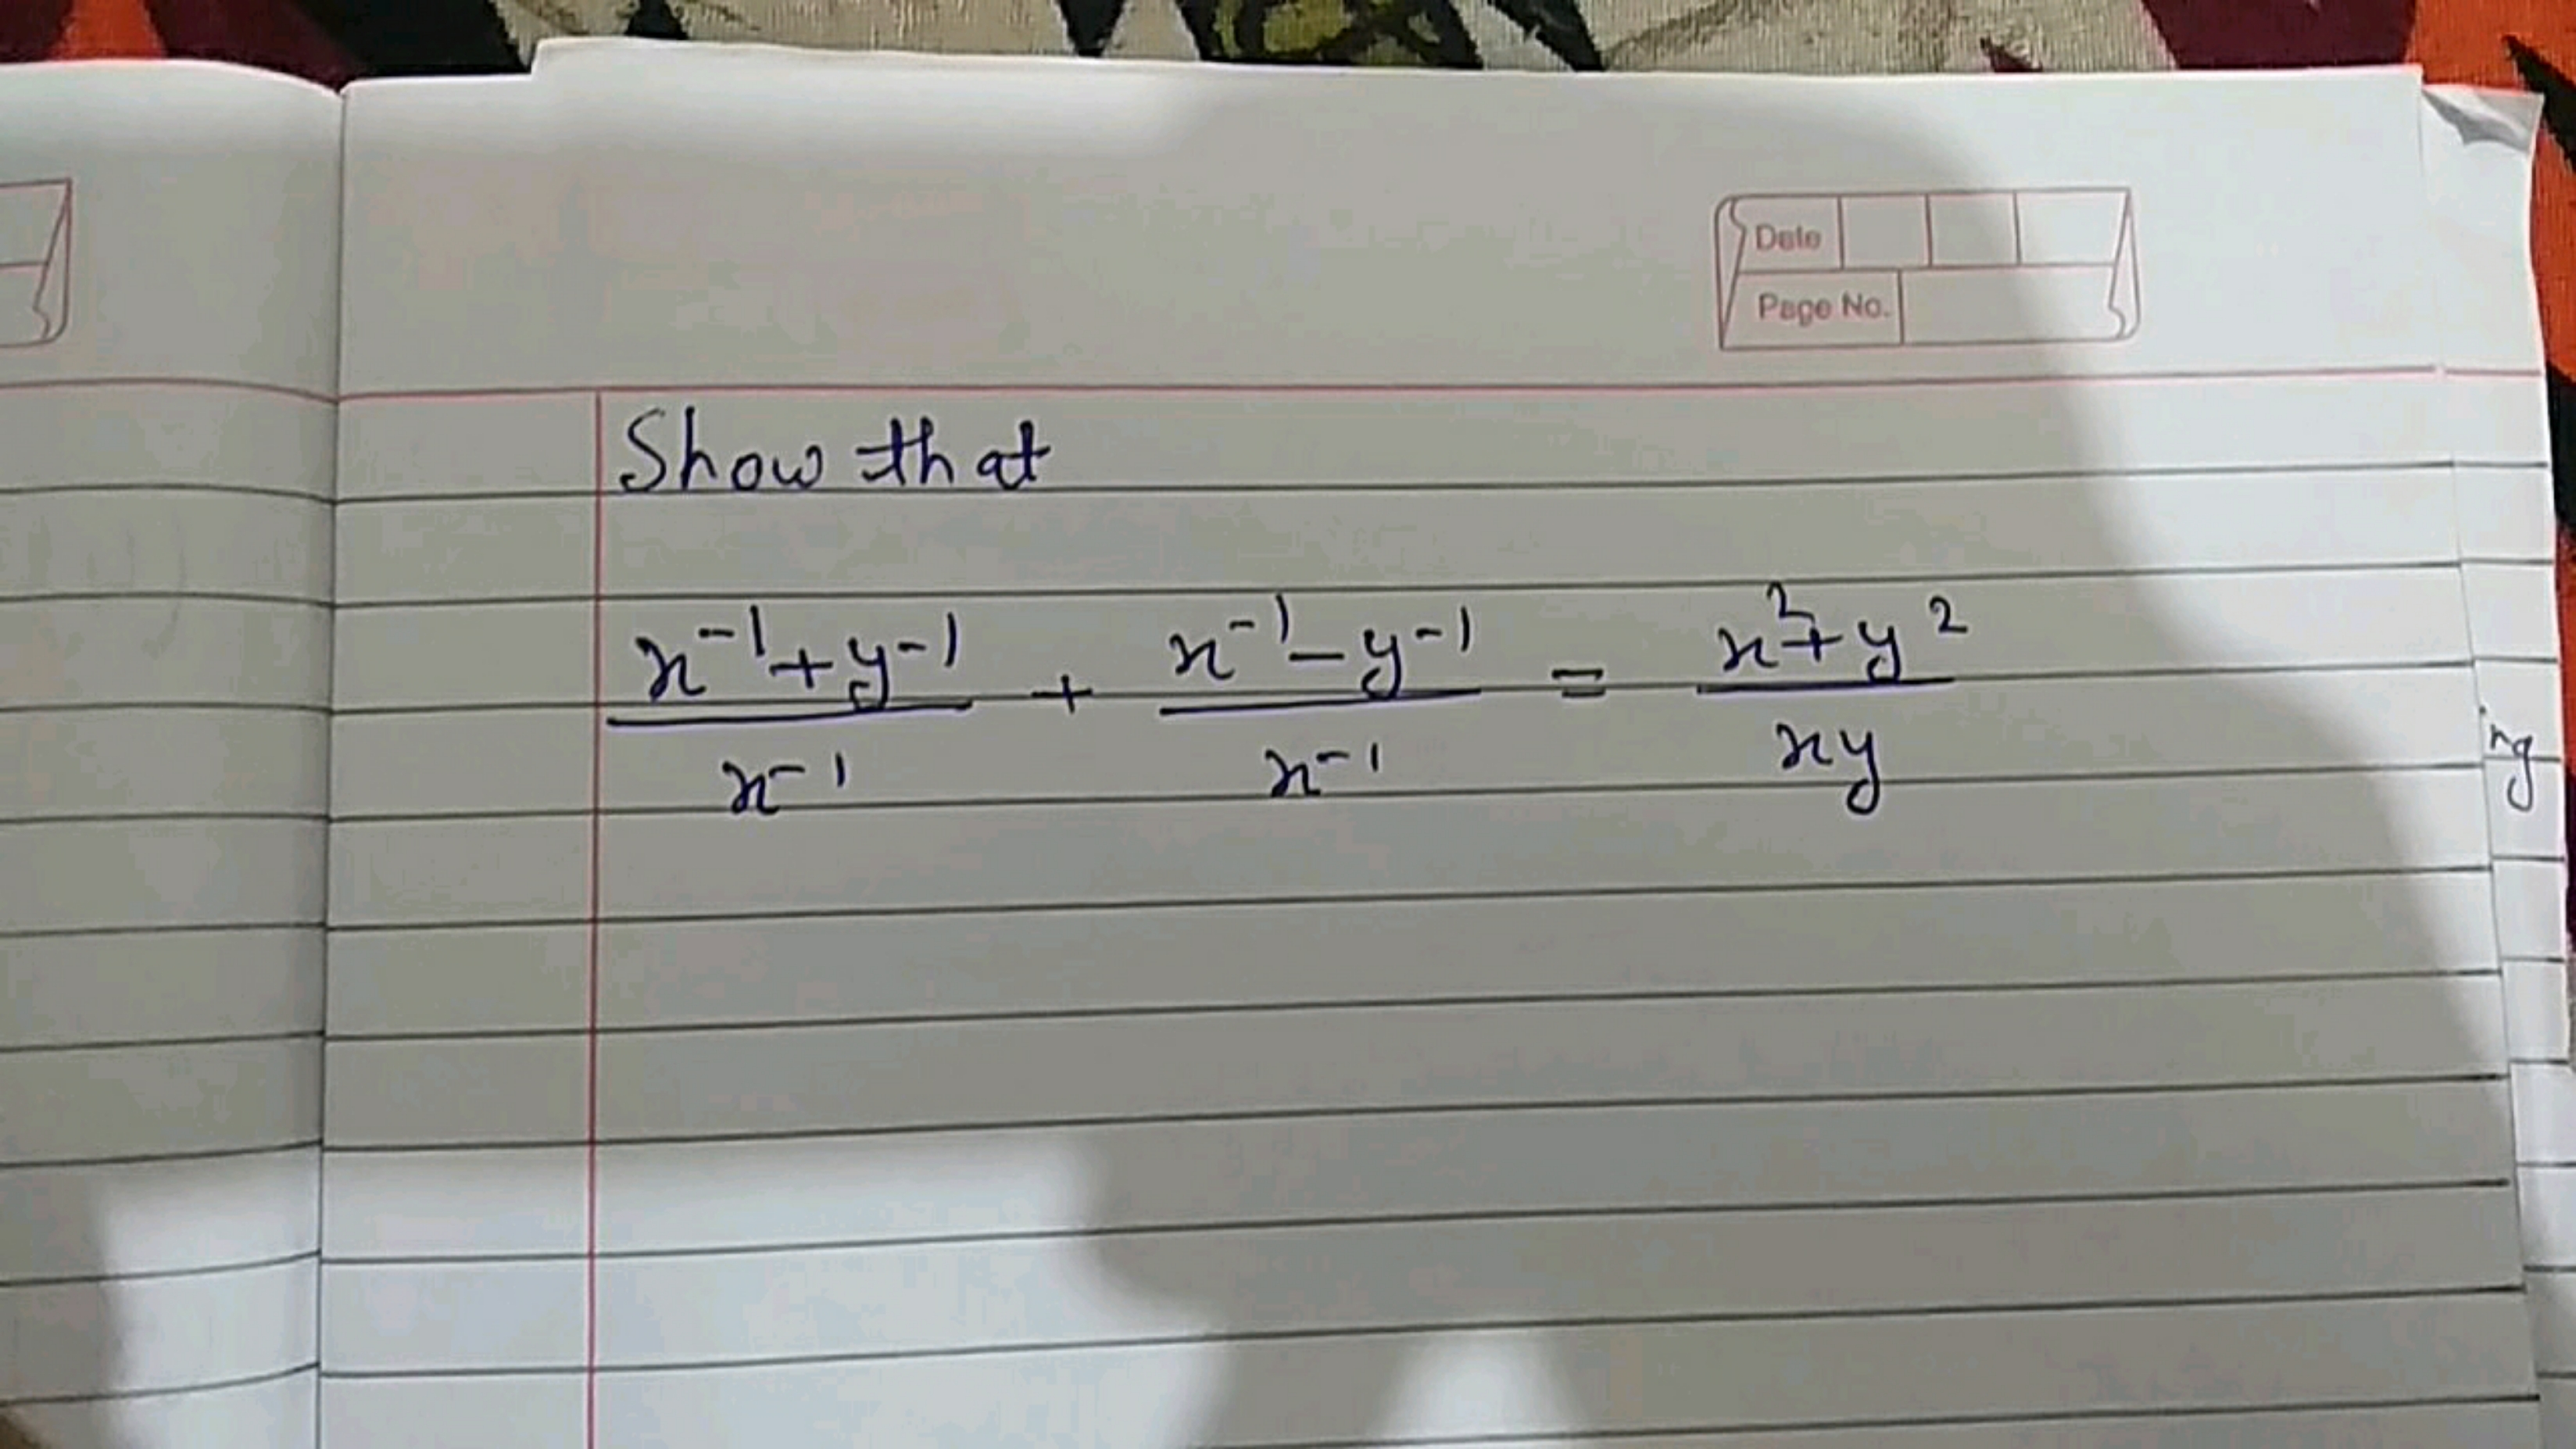 Date
Page No.
Show that
x⁻¹+y⁻¹/x⁻¹ + x⁻¹-y⁻¹/x⁻¹ = x²+y²/xy
ng